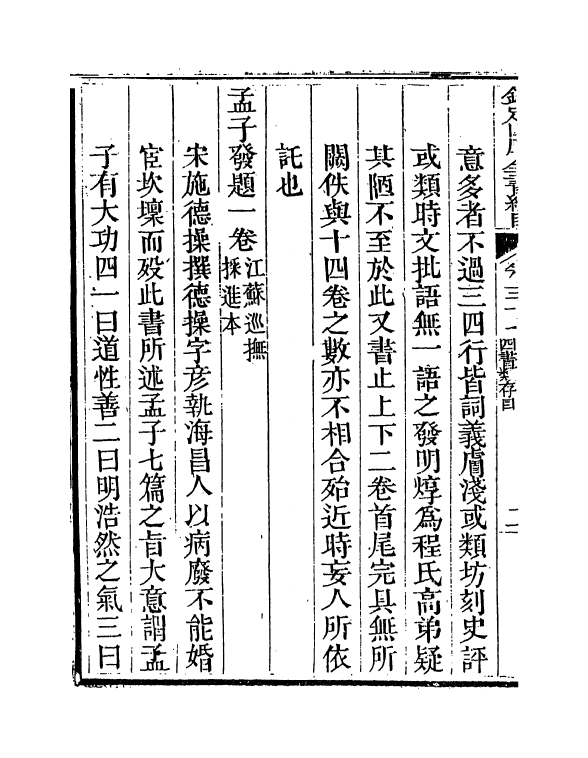 意多者不過三四行皆詞義膚淺或類坊刻史評
或類時文批語無一語之發明焞爲程氏高弟疑
其陋不至於此又書止上下二卷首尾完具無所
闕佚與十四卷之數亦不相合殆近時妄人所依
託也
孟子發題一卷
江蘇巡撫
採進本
宋施德操撰德操字彦執海昌人以病廢不能婚
宦坎壈而殁此書所述孟子七篇之旨大意謂孟
子有大功四一曰道性善二曰明浩然之氣三曰
四書類存目